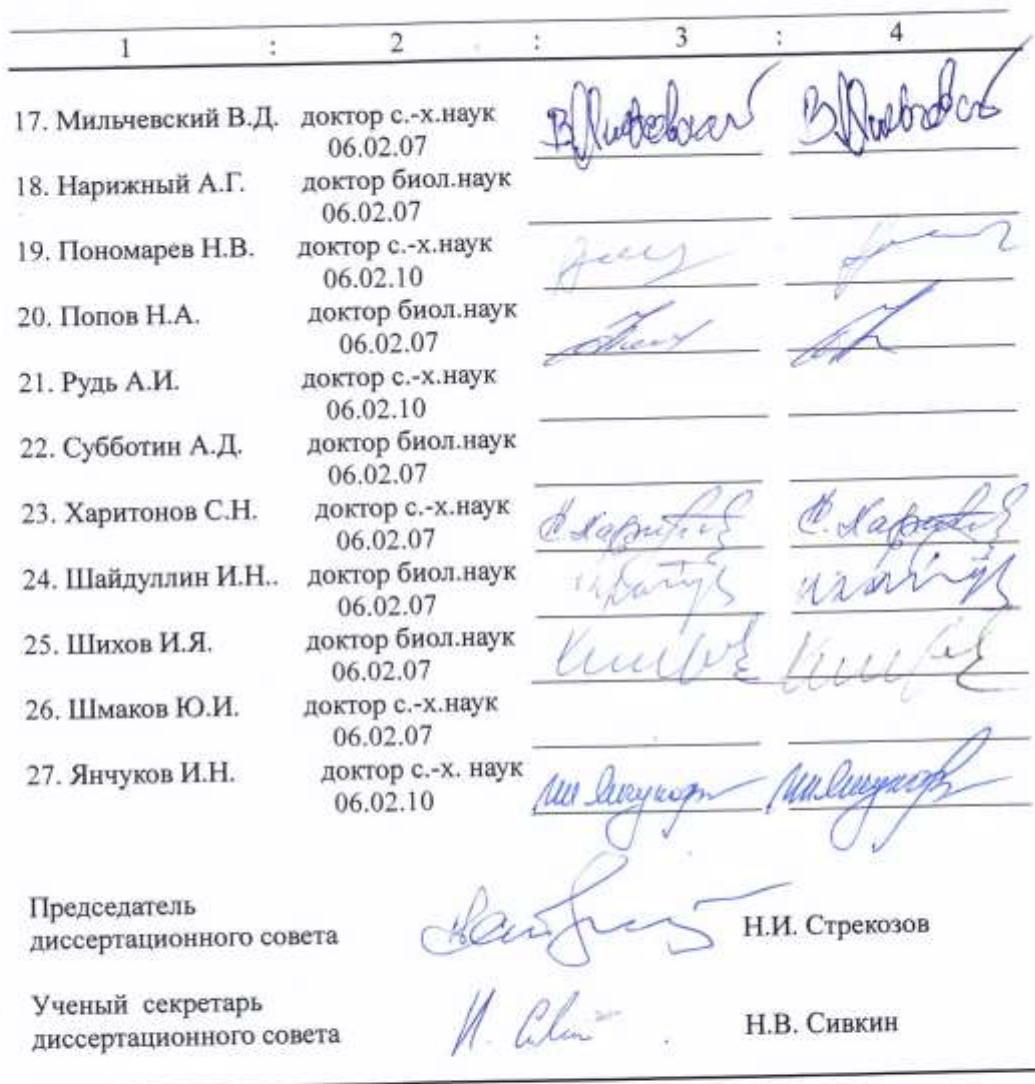 1 : 2 : 3 : 4
17. Мильчевский В.Д. доктор с.-х.наук
06.02.07
18. Нарижный А.Г. доктор биол.наук
06.02.07
19. Пономарев Н.В. доктор с.-х.наук
06.02.10
20. Попов Н.А. доктор биол.наук
06.02.07
21. Рудь А.И. доктор с.-х.наук
06.02.10
22. Субботин А.Д. доктор биол.наук
06.02.07
23. Харитонов С.Н. доктор с.-х.наук
06.02.07
24. Шайдуллин И.Н.. доктор биол.наук
06.02.07
25. Шихов И.Я. доктор биол.наук
06.02.07
26. Шмаков Ю.И. доктор с.-х.наук
06.02.07
27. Янчуков И.Н. доктор с.-х. наук
06.02.10
Председатель
диссертационного совета Н.И. Стрекозов
Ученый секретарь
диссертационного совета Н.В. Сивкин